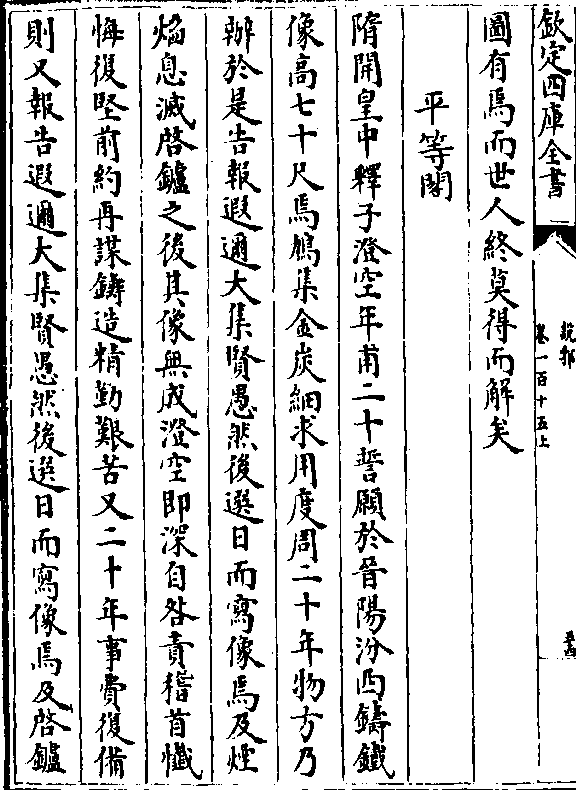 欽定四庫全書
說郛
卷一百十五上
圖有焉而世人終莫得而解矣
平等閣
隋開皇中釋子澄空年甫二十誓願於晉陽汾西鑄鐵
像高七十尺焉鳩集金炭細求用度周二十年物方乃
辦於是告報遐邇大集賢愚然後選日而寫像焉及煙
焰息滅啓鑪之後其像無成澄空即深自咎責稽首懺
悔復堅前約再謀鑄造精勤艱苦又二十年事費復備
則又報告遐邇大集賢愚然後選日而寫像焉及啓鑪